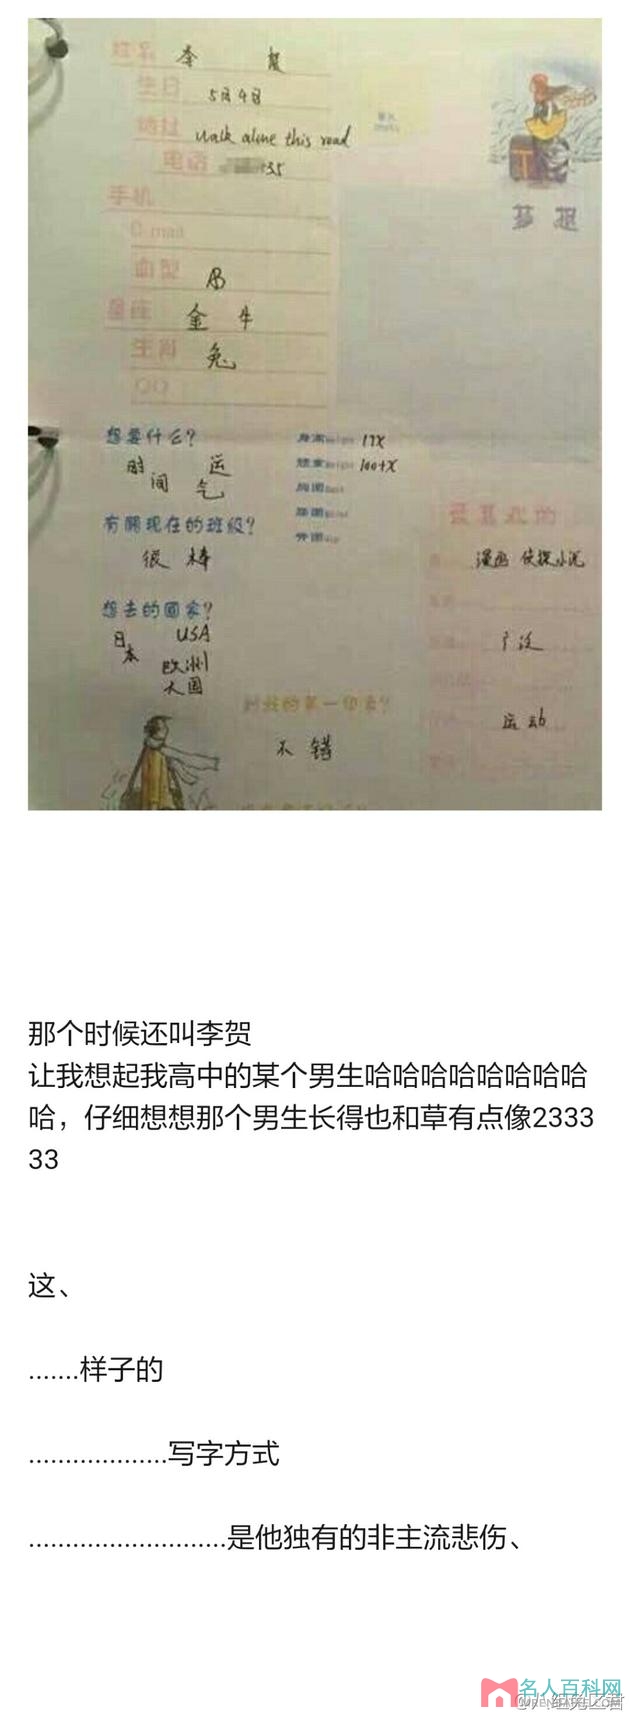 姓名 李 贺
生日 5月4日
地址 walk alone this road
电话 35
手机
E-mail
血型 B
星座 金牛
生肖 兔
QQ
梦想
想要什么?
时间 运气
身高 17X
体重 100+X
胸围
腰围
臀围
有关现在的班级?
很棒
想去的国家?
日本 USA
欧洲
大国
最喜欢的
漫画 侦探小说
广泛
运动
对我的第一印象?
不错
那个时候还叫李贺
让我想起我高中的某个男生哈哈哈哈哈哈哈哈
哈，仔细想想那个男生长得也和草有点像2333
33
这、
.......样子的
...................写字方式
...........................是他独有的非主流悲伤、
名人百科网